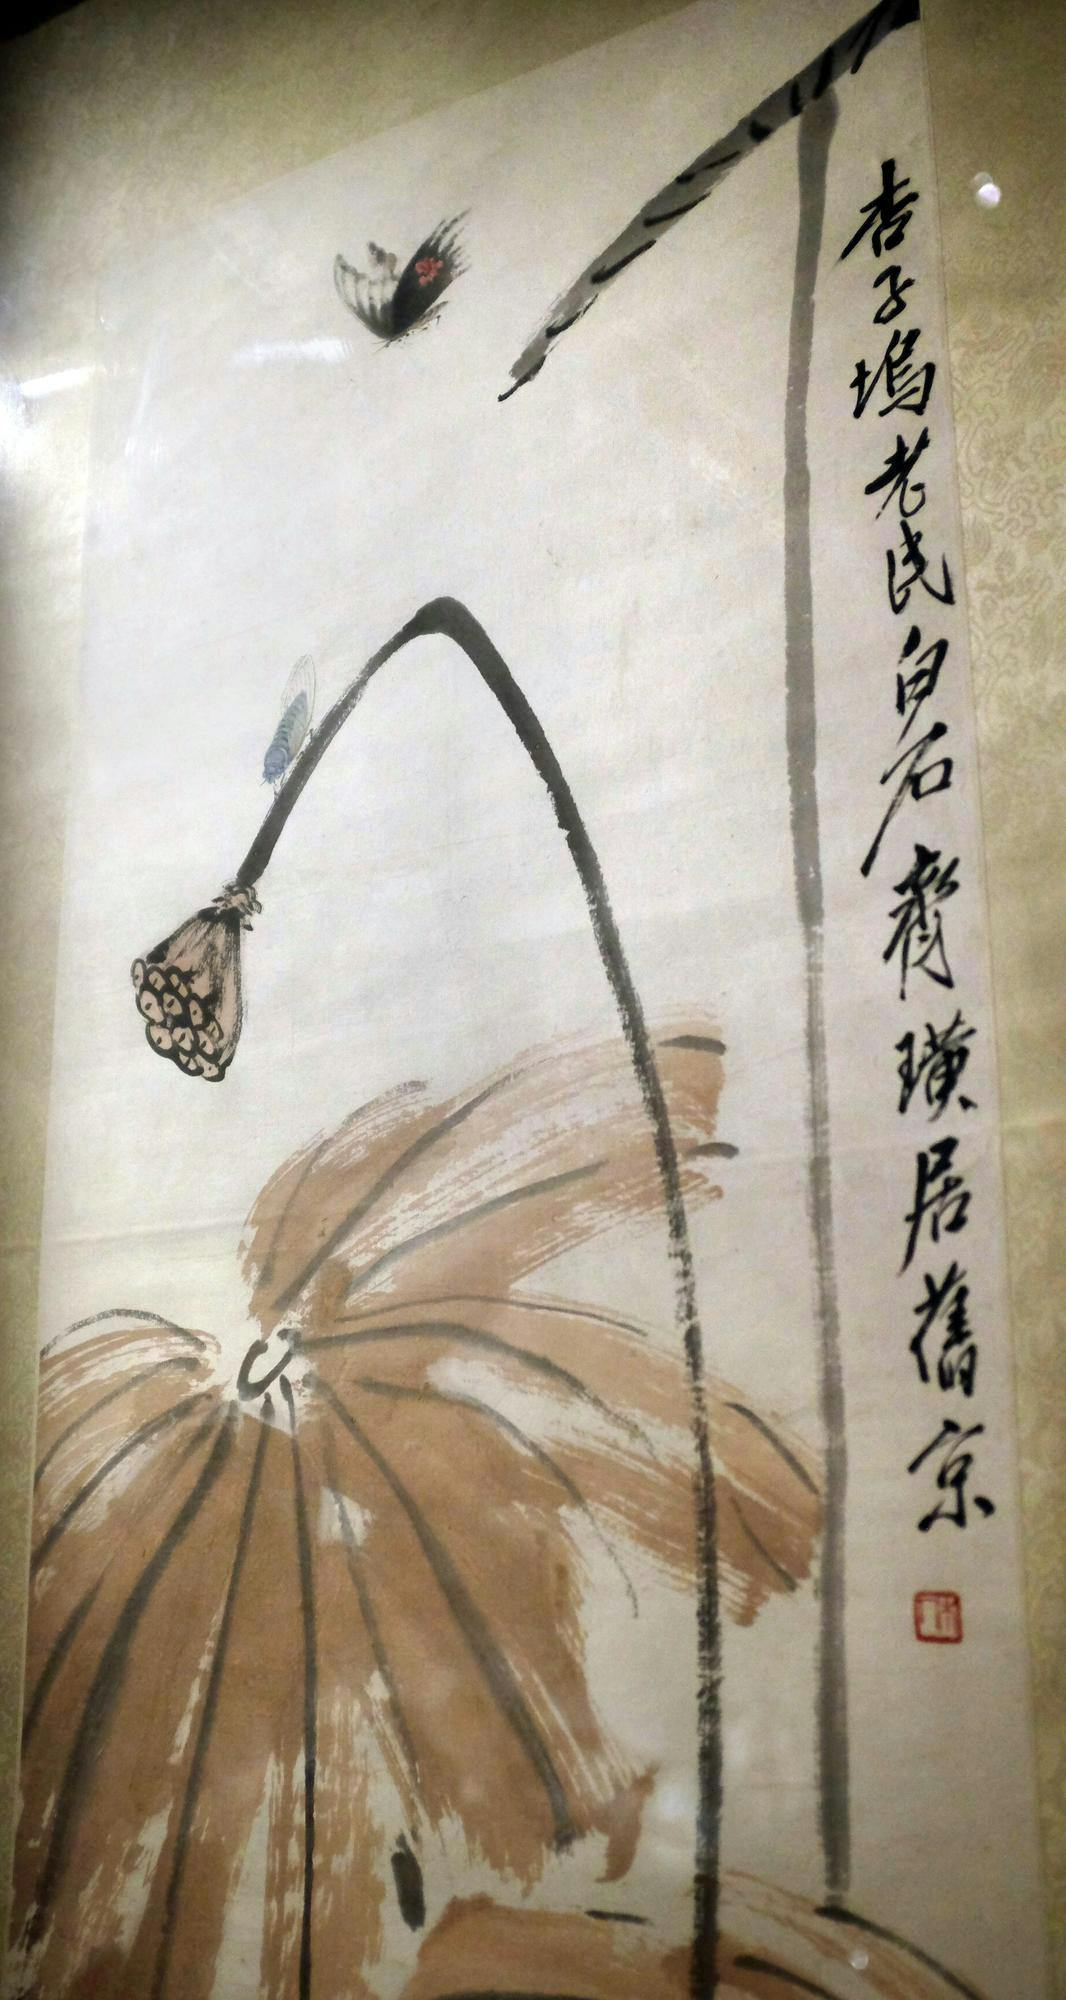 杏子塢老民白石齊璜居舊京